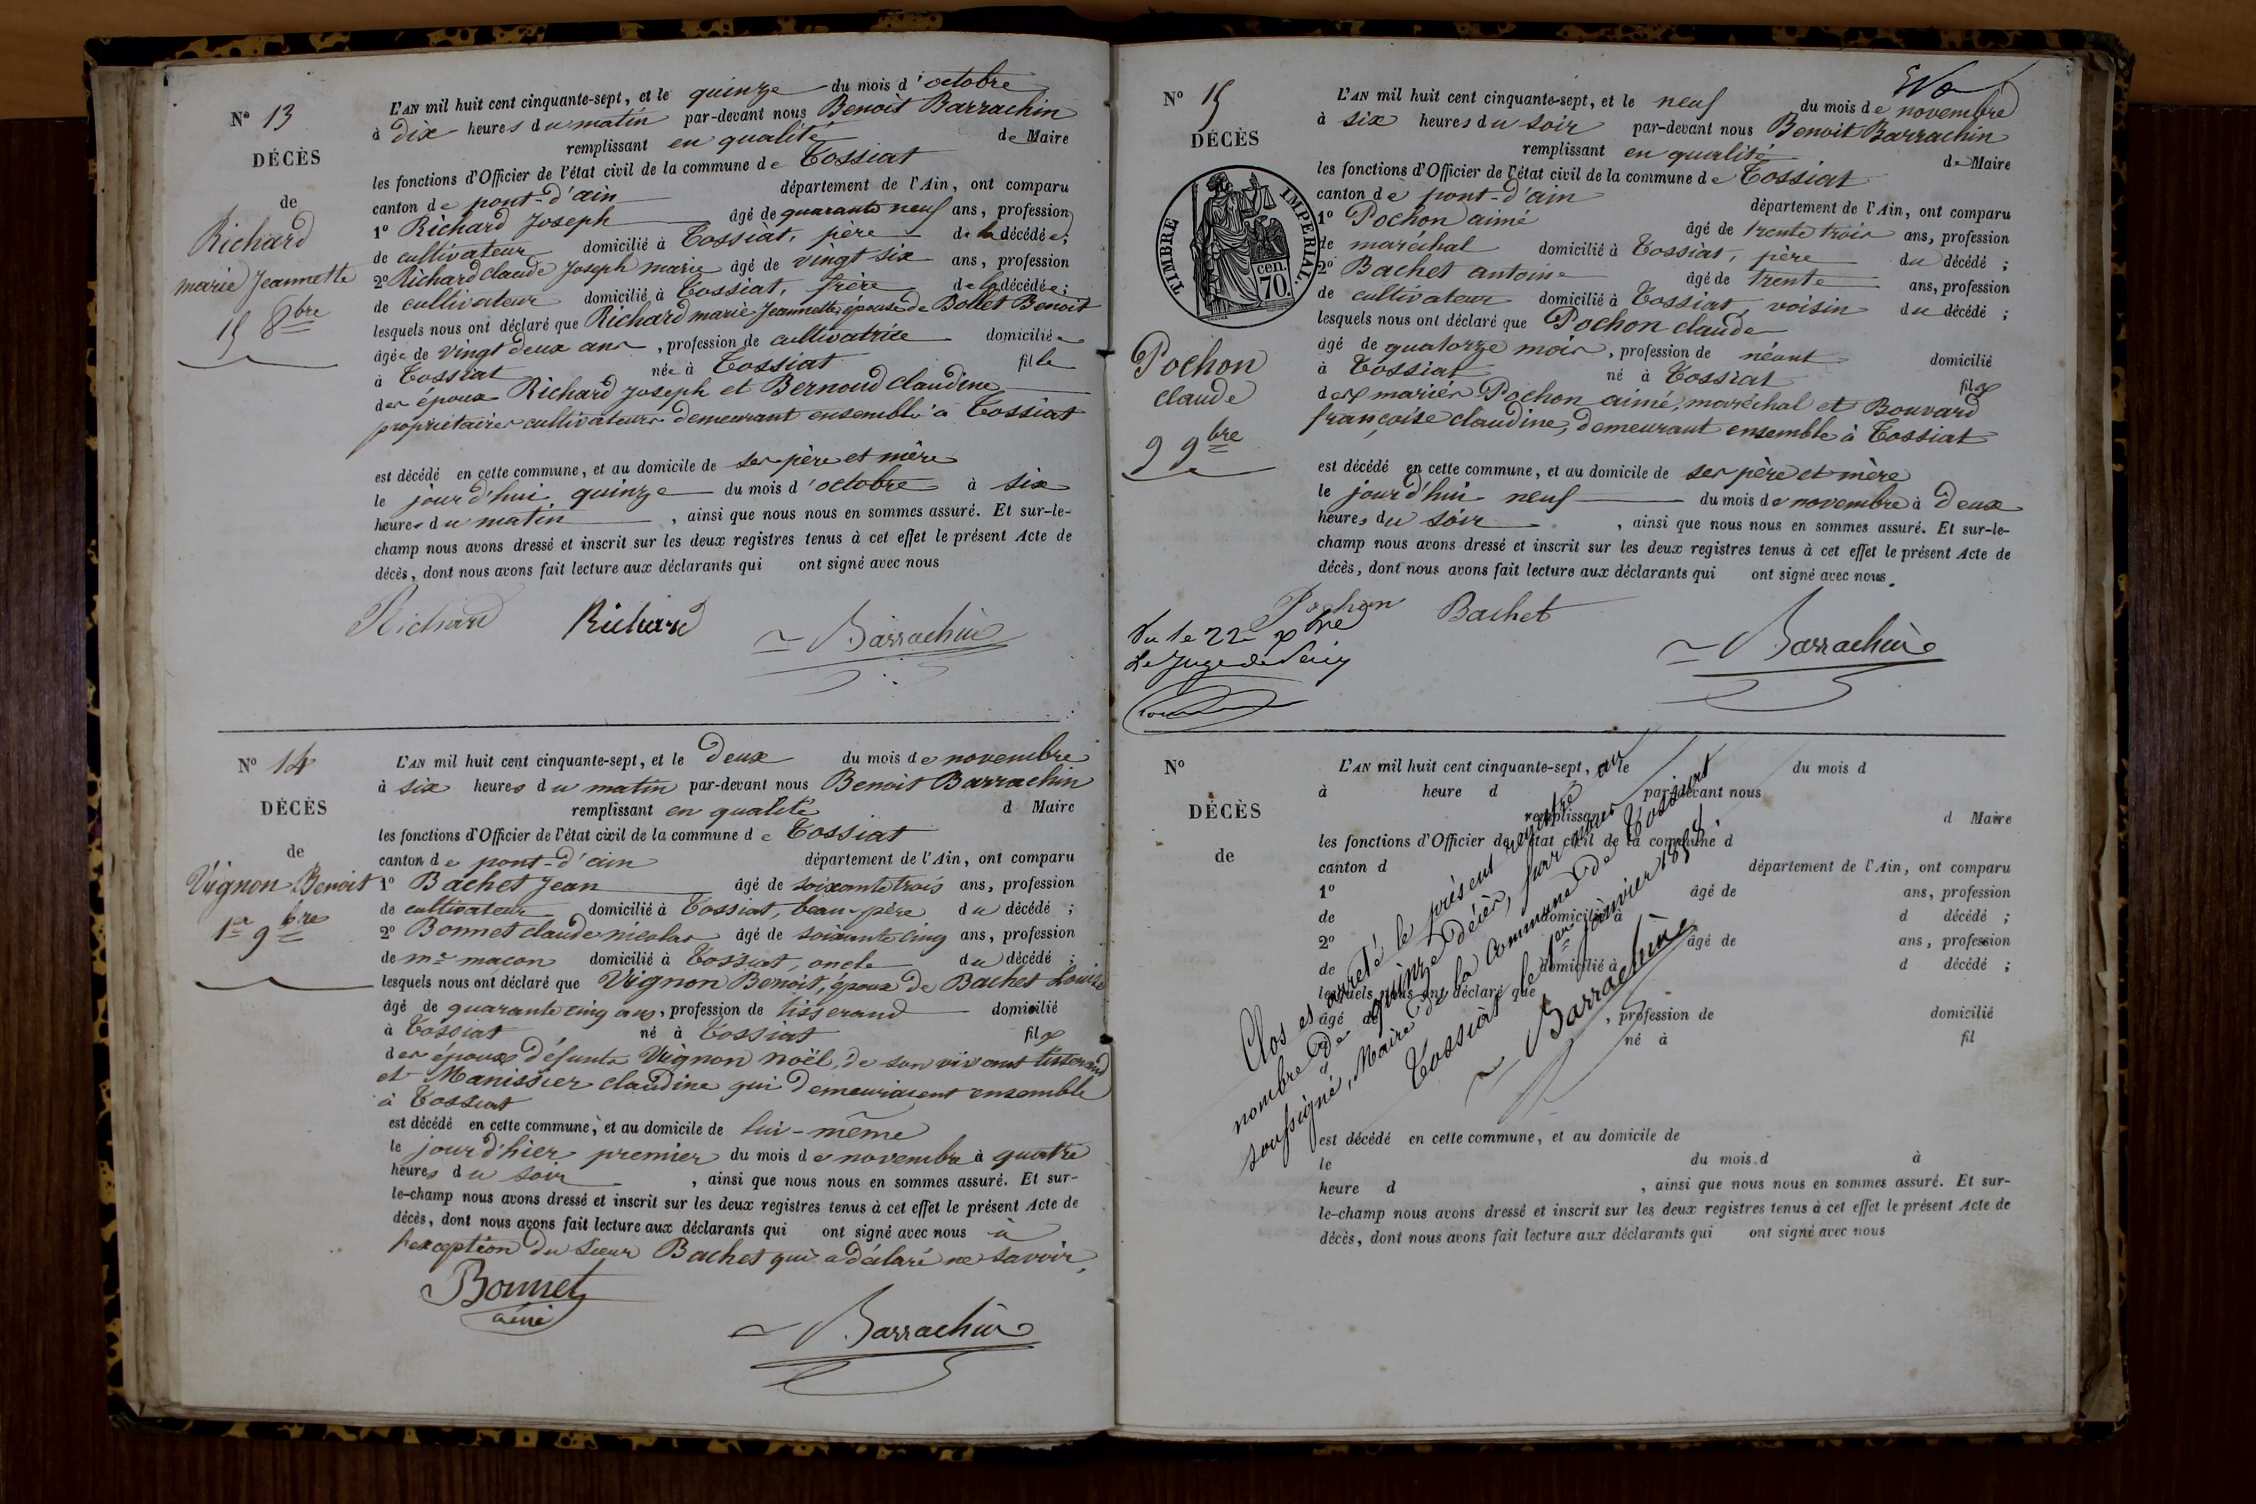 N° 13
DÉCÈS
de
Richard
marie Jeannette
15 8bre
L'AN mil huit cent cinquante-sept, et le quinze du mois d'octobre
à dix heures du matin par-devant nous Benoit Barrachin
remplissant en qualité de Maire
les fonctions d'Officier de l'état civil de la commune de Tossiat
canton de pont-d'ain département de l'Ain, ont comparu
1° Richard Joseph âgé de quarante neuf ans, profession
de cultivateur domicilié à Tossiat, père de la décédée;
2° Richard claude Joseph marie âgé de vingt six ans, profession
de cultivateur domicilié à Tossiat, frère de la décédée;
lesquels nous ont déclaré que Richard marie Jeannette, épouse de Bollet Benoit
âgée de vingt deux ans, profession de cultivatrice domiciliée
à Tossiat née à Tossiat fille
des époux Richard Joseph et Bernoud claudine
propriétaires cultivateurs demeurant ensemble à Tossiat
est décédé en cette commune, et au domicile de ses père et mère
le jour d'hui quinze du mois d'octobre à six
heures du matin, ainsi que nous nous en sommes assuré. Et sur-le-
champ nous avons dressé et inscrit sur les deux registres tenus à cet effet le présent Acte de
décès, dont nous avons fait lecture aux déclarants qui ont signé avec nous
Richard Richard Barrachin
N° 14
DÉCÈS
de
Vignon Benoit
1er 9bre
L'AN mil huit cent cinquante-sept, et le deux du mois de novembre
à six heures du matin par-devant nous Benoit Barrachin
remplissant en qualité d Maire
les fonctions d'Officier de l'état civil de la commune de Tossiat
canton de pont-d'ain département de l'Ain, ont comparu
1° Bachet Jean âgé de soixante trois ans, profession
de cultivateur domicilié à Tossiat, beau-père du décédé;
2° Bonnet claude nicolas âgé de soixante cinq ans, profession
de me maçon domicilié à Tossiat, oncle du décédé;
lesquels nous ont déclaré que Vignon Benoit, époux de Bachet Louise
âgé de quarante cinq ans, profession de tisserand domicilié
à Tossiat né à Tossiat fils
des époux défunts Vignon noël, de son vivant tisserand
et Manissier claudine qui demeuraient ensemble
à Tossiat
est décédé en cette commune, et au domicile de lui-même
le jour d'hier premier du mois de novembre à quatre
heures du soir, ainsi que nous nous en sommes assuré. Et sur-
le-champ nous avons dressé et inscrit sur les deux registres tenus à cet effet le présent Acte de
décès, dont nous avons fait lecture aux déclarants qui ont signé avec nous à
l'exception du sieur Bachet qui a déclaré ne savoir.
Bonnet
aîné
Barrachin
N° 15
DÉCÈS
TIMBRE IMPÉRIAL.
cen.
70.
Pochon
claude
9 9bre
L'AN mil huit cent cinquante-sept, et le neuf du mois de novembre
à six heures du soir par-devant nous Benoit Barrachin
remplissant en qualité de Maire
les fonctions d'Officier de l'état civil de la commune de Tossiat
canton de pont-d'ain département de l'Ain, ont comparu
1° Pochon aimé âgé de trente trois ans, profession
de maréchal domicilié à Tossiat, père du décédé;
2° Bachet antoine âgé de trente ans, profession
de cultivateur domicilié à Tossiat, voisin du décédé;
lesquels nous ont déclaré que Pochon claude
âgé de quatorze mois, profession de néant domicilié
à Tossiat né à Tossiat fils
des mariés Pochon aimé, maréchal et Bouvard
françoise claudine, demeurant ensemble à Tossiat
est décédé en cette commune, et au domicile de ses père et mère
le jour d'hui neuf du mois de novembre à deux
heures du soir, ainsi que nous nous en sommes assuré. Et sur-le-
champ nous avons dressé et inscrit sur les deux registres tenus à cet effet le présent Acte de
décès, dont nous avons fait lecture aux déclarants qui ont signé avec nous.
Pochon Bachet
Barrachin
Vu le 22 xbre
Le Juge de Paix
N°
DÉCÈS
de
L'AN mil huit cent cinquante-sept, et le du mois d
à heure d par-devant nous
remplissant d Maire
les fonctions d'Officier de l'état civil de la commune d
canton d département de l'Ain, ont comparu
1° âgé de ans, profession
de domicilié à d décédé;
2° âgé de ans, profession
de domicilié à d décédé;
lesquels nous ont déclaré que
âgé de , profession de domicilié
né à fil
est décédé en cette commune, et au domicile de
le du mois d à
heure d , ainsi que nous nous en sommes assuré. Et sur-
le-champ nous avons dressé et inscrit sur les deux registres tenus à cet effet le présent Acte de
décès, dont nous avons fait lecture aux déclarants qui ont signé avec nous
Clos et arrêté le présent registre au
nombre de quinze décès, par nous
soussigné, Maire de la Commune de Tossiat
à Tossiat le 1er Janvier 1858
Barrachin